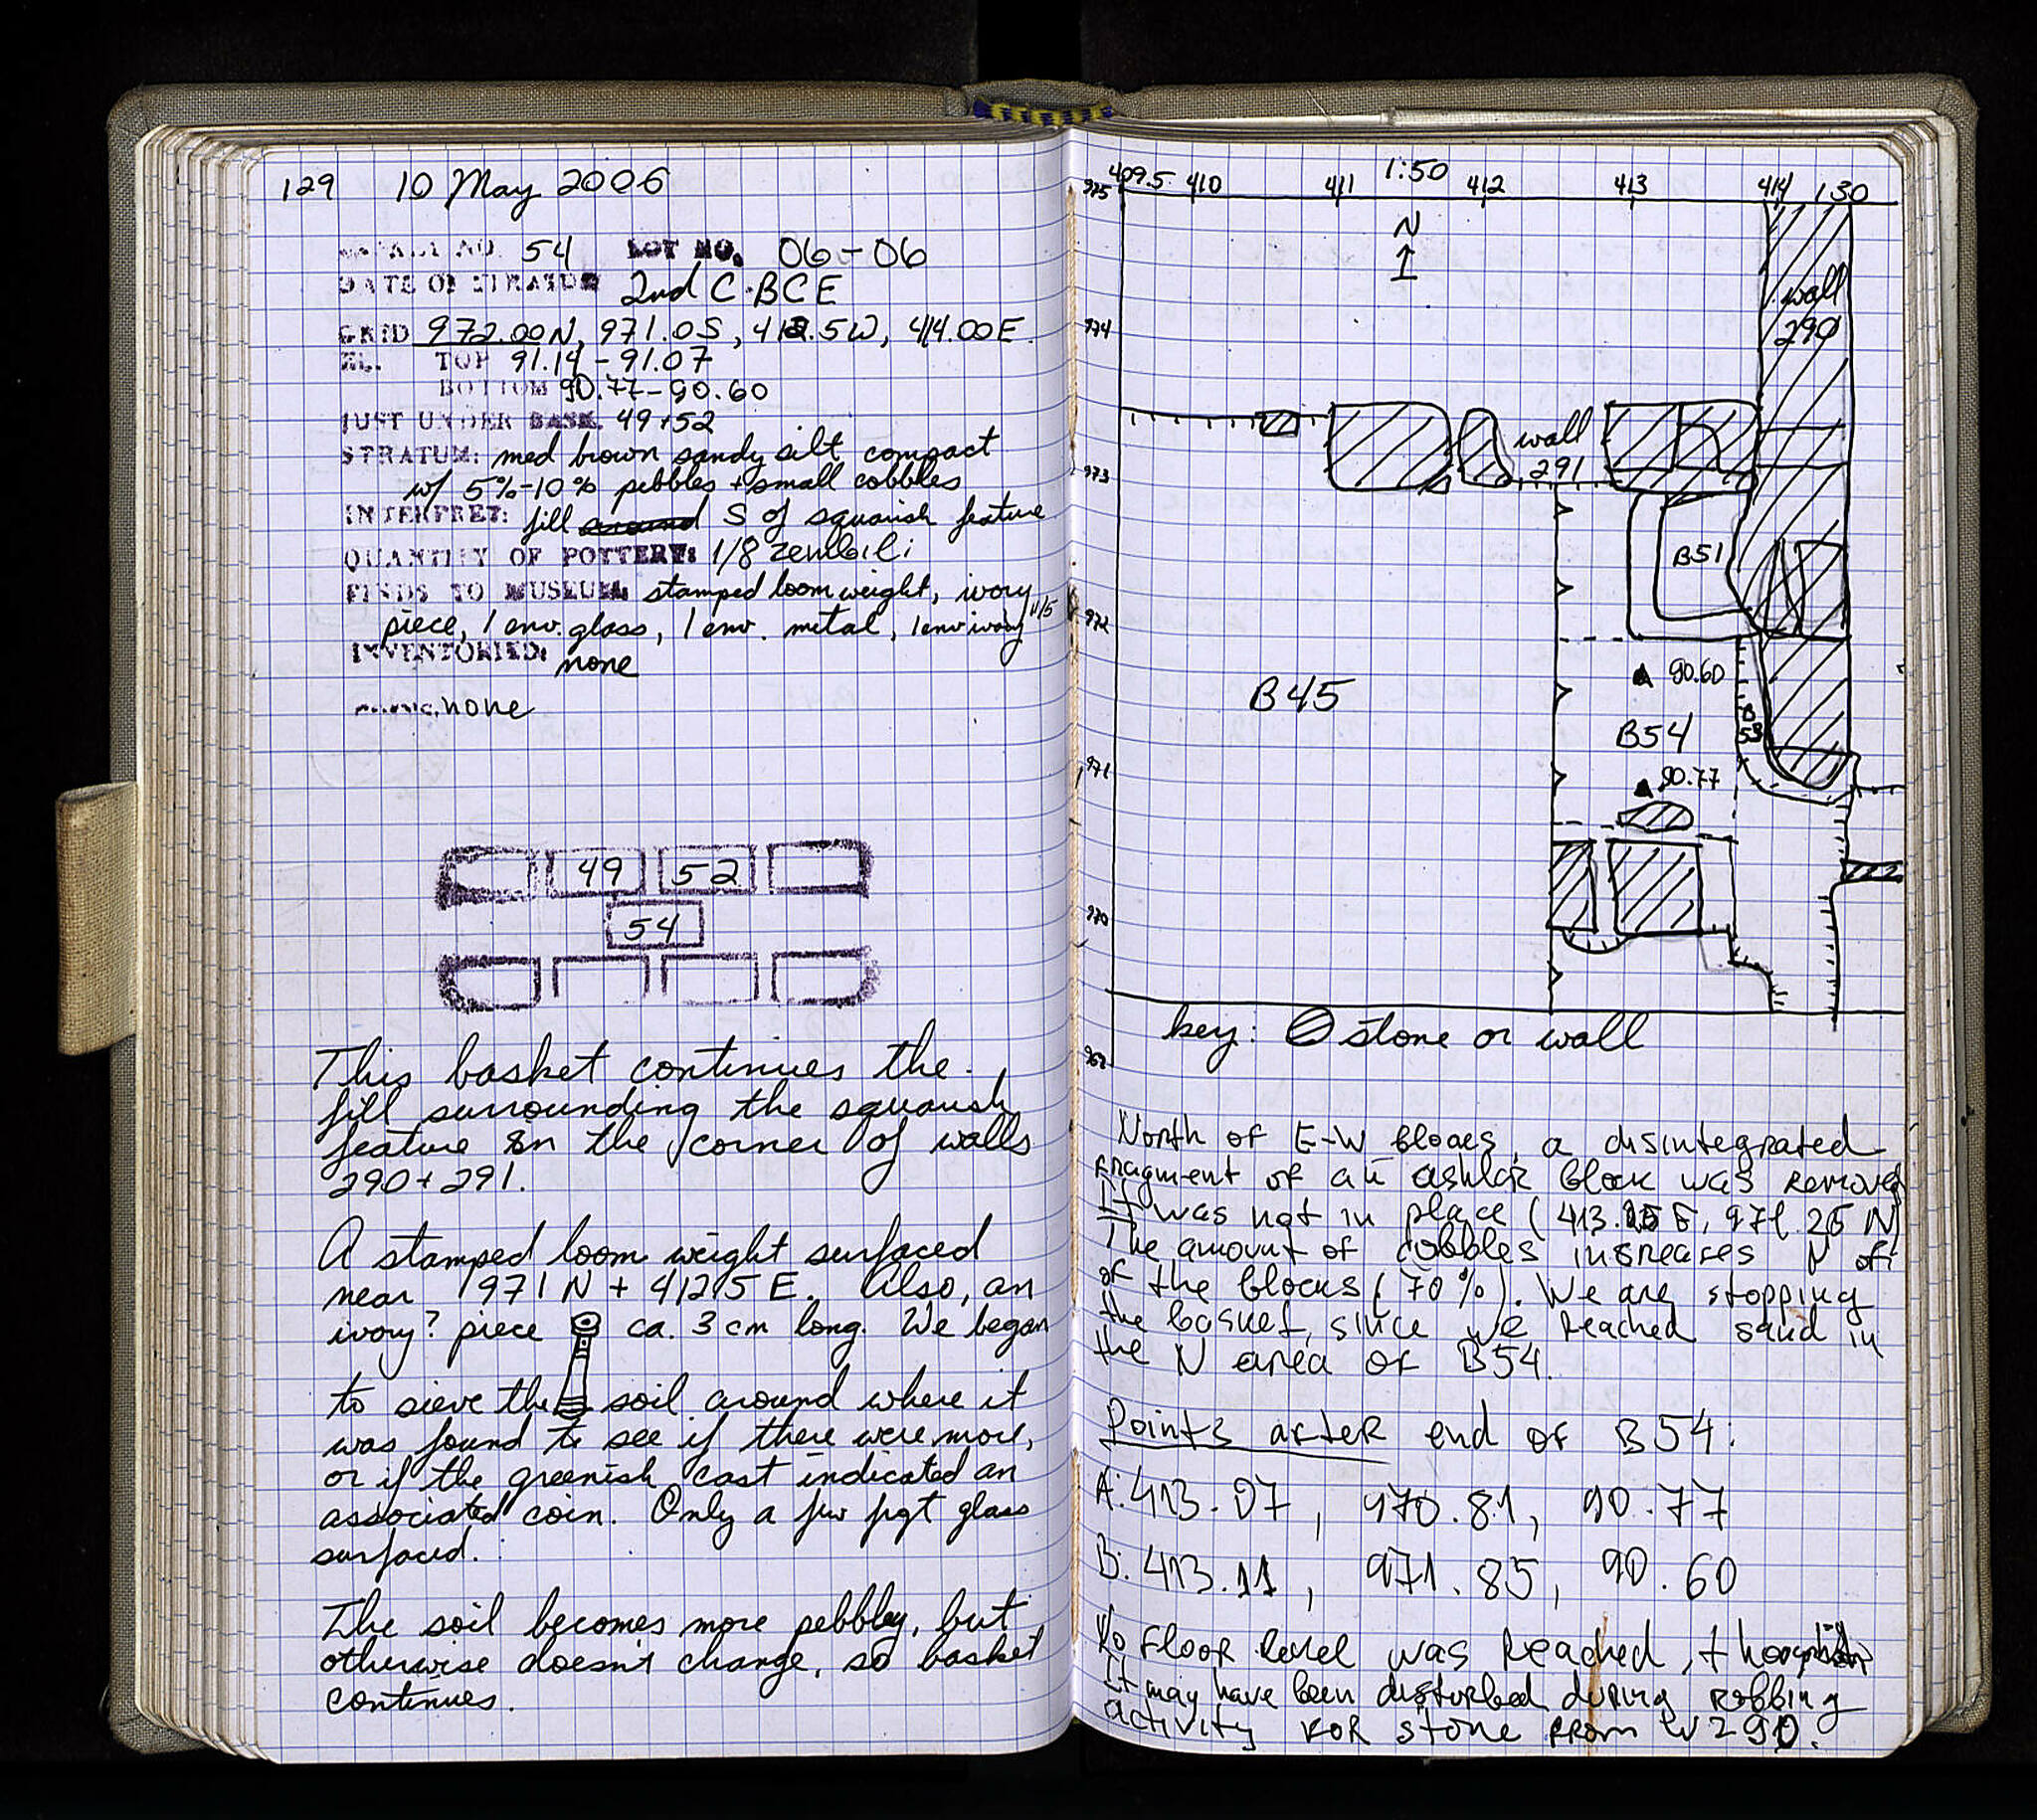 129 10 May 2006
BASKET NO. 54 LOT NO. 06-06
DATE OF STRATUM 2nd C. BCE
GRID 972.00N, 971.0S, 412.5W, 414.00E.
EL. TOP 91.14-91.07
BOTTOM 90.77-90.60
JUST UNDER BASK. 49+52
STRATUM: med brown sandy silt compact
w/ 5%-10% pebbles + small cobbles
INTERPRET: fill around S of squarish feature
QUANTITY OF POTTERY: 1/8 zembili
FINDS TO MUSEUM: stamped loom weight, ivory
piece, 1 env. glass, 1 env. metal, 1 env ivory
INVENTORIED: none
none
49 52
54
This basket continues the
fill surrounding the squarish
feature in the corner of walls
290+291.
A stamped loom weight surfaced
near 971 N + 412.5 E. Also, an
ivory? piece ca. 3 cm long. We began
to sieve the soil around where it
was found to see if there were more,
or if the greenish cast indicated an
associated coin. Only a few fgt glass
surfaced.
The soil becomes more pebbley, but
otherwise doesn't change, so basket
continues.
1:50
409.5 410 411 412 413 414 1:30
975
N
wall
290
974
wall
291
973
B51
972
90.60
B45
B54
B
53
971
90.77
970
key: stone or wall
North of E-W blocks, a disintegrated
fragment of an ashlar block was removed
It was not in place (413. E, 971.25 N)
The amount of cobbles increases N of
of the blocks (70%). We are stopping
the basket, since we reached sand in
the N area of B54.
Points after end of B54:
A: 413.07, 970.81, 90.77
B: 413.11, 971.85, 90.60
No floor level was reached, though
It may have been disturbed during robbing
activity for stone from W290.